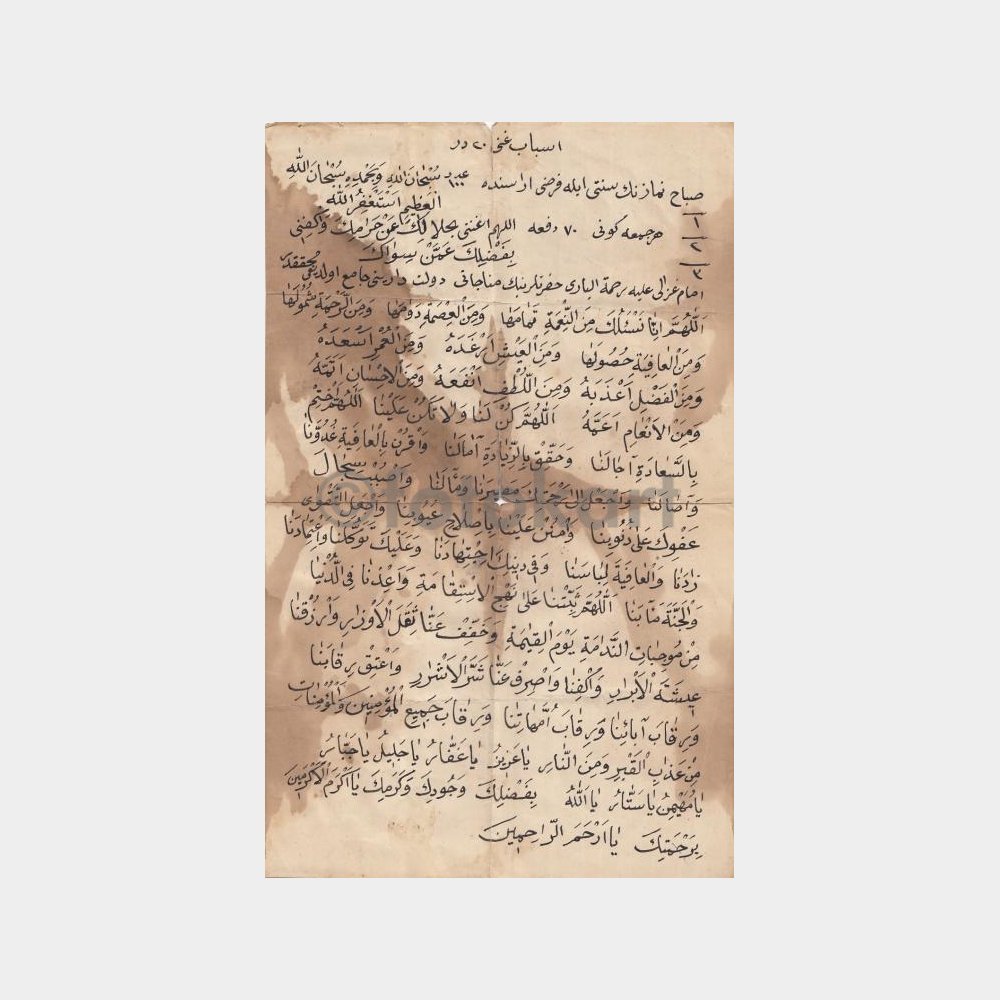 اسباب غنى ٢٠ در
صباح نمازنك سنتى ايله فرضى اراسنده ١٠٠ عدد سُبْحَانَ اللهِ وَبِحَمْدِهِ سُبْحَانَ اللهِ
الْعَظِيمِ اَسْتَغْفِرُ اللهَ
١
هر جمعه كونى ٧٠ دفعه اللهم اغننى بحلالِكَ عَنْ حَرَامِكَ وَاكْفِنِى
٢
بِفَضْلِكَ عَمَّنْ سِوَاكَ
٣
امام غزالى عليه رحمة البارى حضرتلرينك مناجاتى دولت دارينى جامع اولديغى محققدر
اَللّٰهُمَّ اِنَّا نَسْئَلُكَ مِنَ النِّعْمَةِ تَمَامَهَا وَمِنَ الْعِصْمَةِ دَوَامَهَا وَمِنَ الرَّحْمَةِ شُمُولَهَا
وَمِنَ الْعَافِيَةِ حُصُولَهَا وَمِنَ الْعَيْشِ اَرْغَدَهُ وَمِنَ الْعُمْرِ اَسْعَدَهُ
وَمِنَ الْفَضْلِ اَعْذَبَهُ وَمِنَ اللُّطْفِ اَنْفَعَهُ وَمِنَ الْاِحْسَانِ اَتَمَّهُ
وَمِنَ الْاَنْعَامِ اَعَمَّهُ اَللّٰهُمَّ كُنْ لَنَا وَلَا تَكُنْ عَلَيْنَا اَللّٰهُمَّ اخْتِمْ
بِالسَّعَادَةِ آجَالَنَا وَحَقِّقْ بِالزِّيَادَةِ آمَالَنَا وَاقْرُنْ بِالْعَافِيَةِ غُدُوَّنَا
وَآصَالَنَا وَاجْعَلْ اِلٰى رَحْمَتِكَ مَصِيرَنَا وَمَآلَنَا وَاصْبُبْ سِجَالَ
عَفْوِكَ عَلٰى ذُنُوبِنَا وَامْنُنْ عَلَيْنَا بِاِصْلَاحِ عُيُوبِنَا وَاجْعَلِ التَّقْوٰى
زَادَنَا وَالْعَافِيَةَ لِبَاسَنَا وَفِى دِينِكَ اجْتِهَادَنَا وَعَلَيْكَ تَوَكُّلَنَا وَاعْتِمَادَنَا
وَالْجَنَّةَ مَآبَنَا اَللّٰهُمَّ ثَبِّتْنَا عَلٰى نَهْجِ الْاِسْتِقَامَةِ وَاَعِذْنَا فِى الدُّنْيَا
مِنْ مُوجِبَاتِ النَّدَامَةِ يَوْمَ الْقِيٰمَةِ وَخَفِّفْ عَنَّا ثِقَلَ الْاَوْزَارِ وَارْزُقْنَا
عِيشَةَ الْاَبْرَارِ وَاكْفِنَا وَاصْرِفْ عَنَّا شَرَّ الْاَشْرَارِ وَاعْتِقْ رِقَابَنَا
وَرِقَابَ آبَائِنَا وَرِقَابَ اُمَّهَاتِنَا وَرِقَابَ جَمِيعِ الْمُؤْمِنِينَ وَالْمُؤْمِنَاتِ
مِنْ عَذَابِ الْقَبْرِ وَمِنَ النَّارِ يَا عَزِيزُ يَا غَفَّارُ يَا جَلِيلُ يَا جَبَّارُ
يَا مُهَيْمِنُ يَا سَتَّارُ يَا اَللهُ بِفَضْلِكَ وَجُودِكَ وَكَرَمِكَ يَا اَكْرَمَ الْاَكْرَمِينَ
بِرَحْمَتِكَ يَا اَرْحَمَ الرَّاحِمِينَ
© fotokart